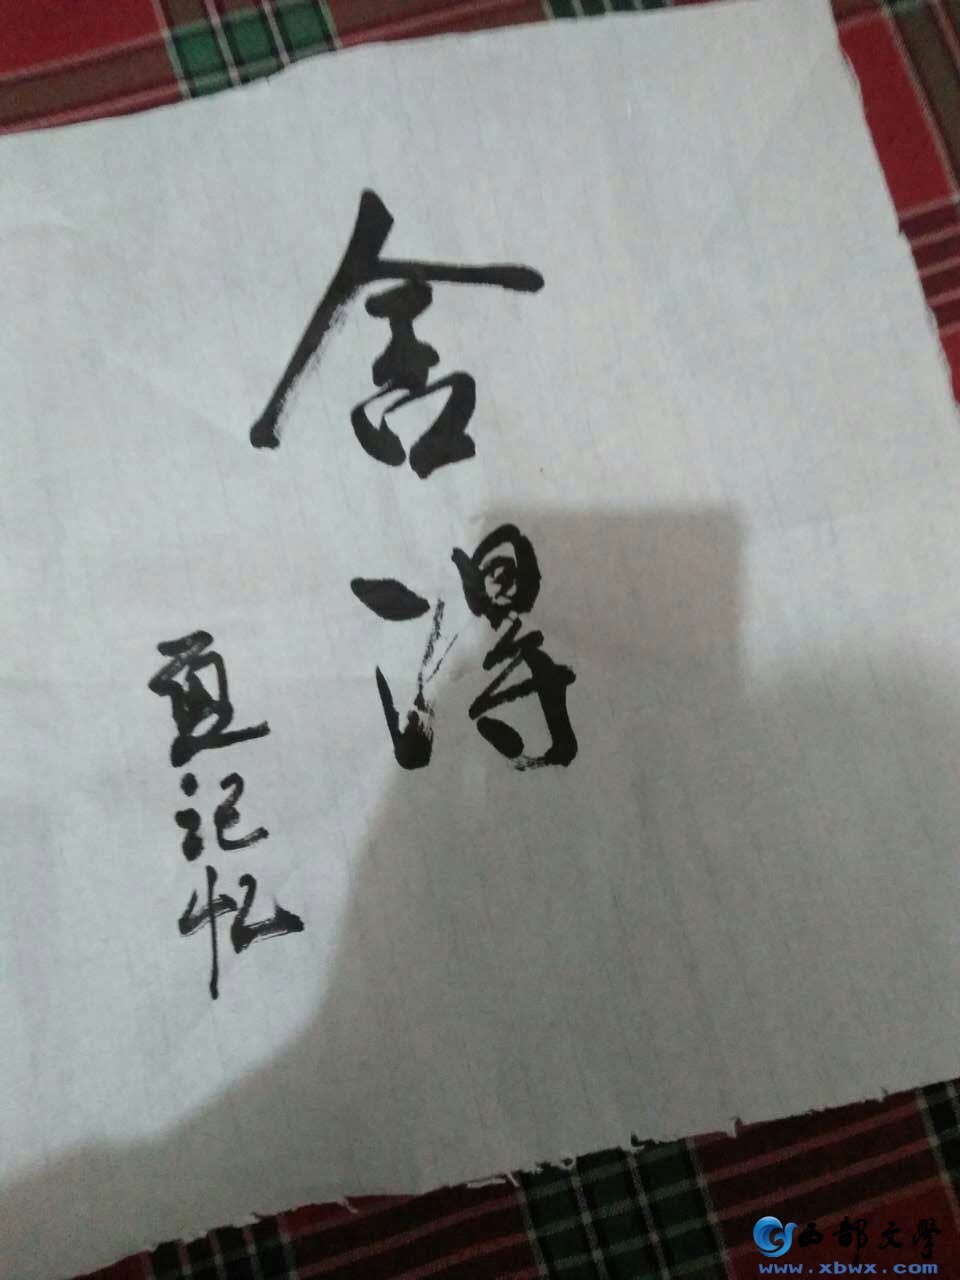 舍得
直记忆
西部文學
www.xbwx.com